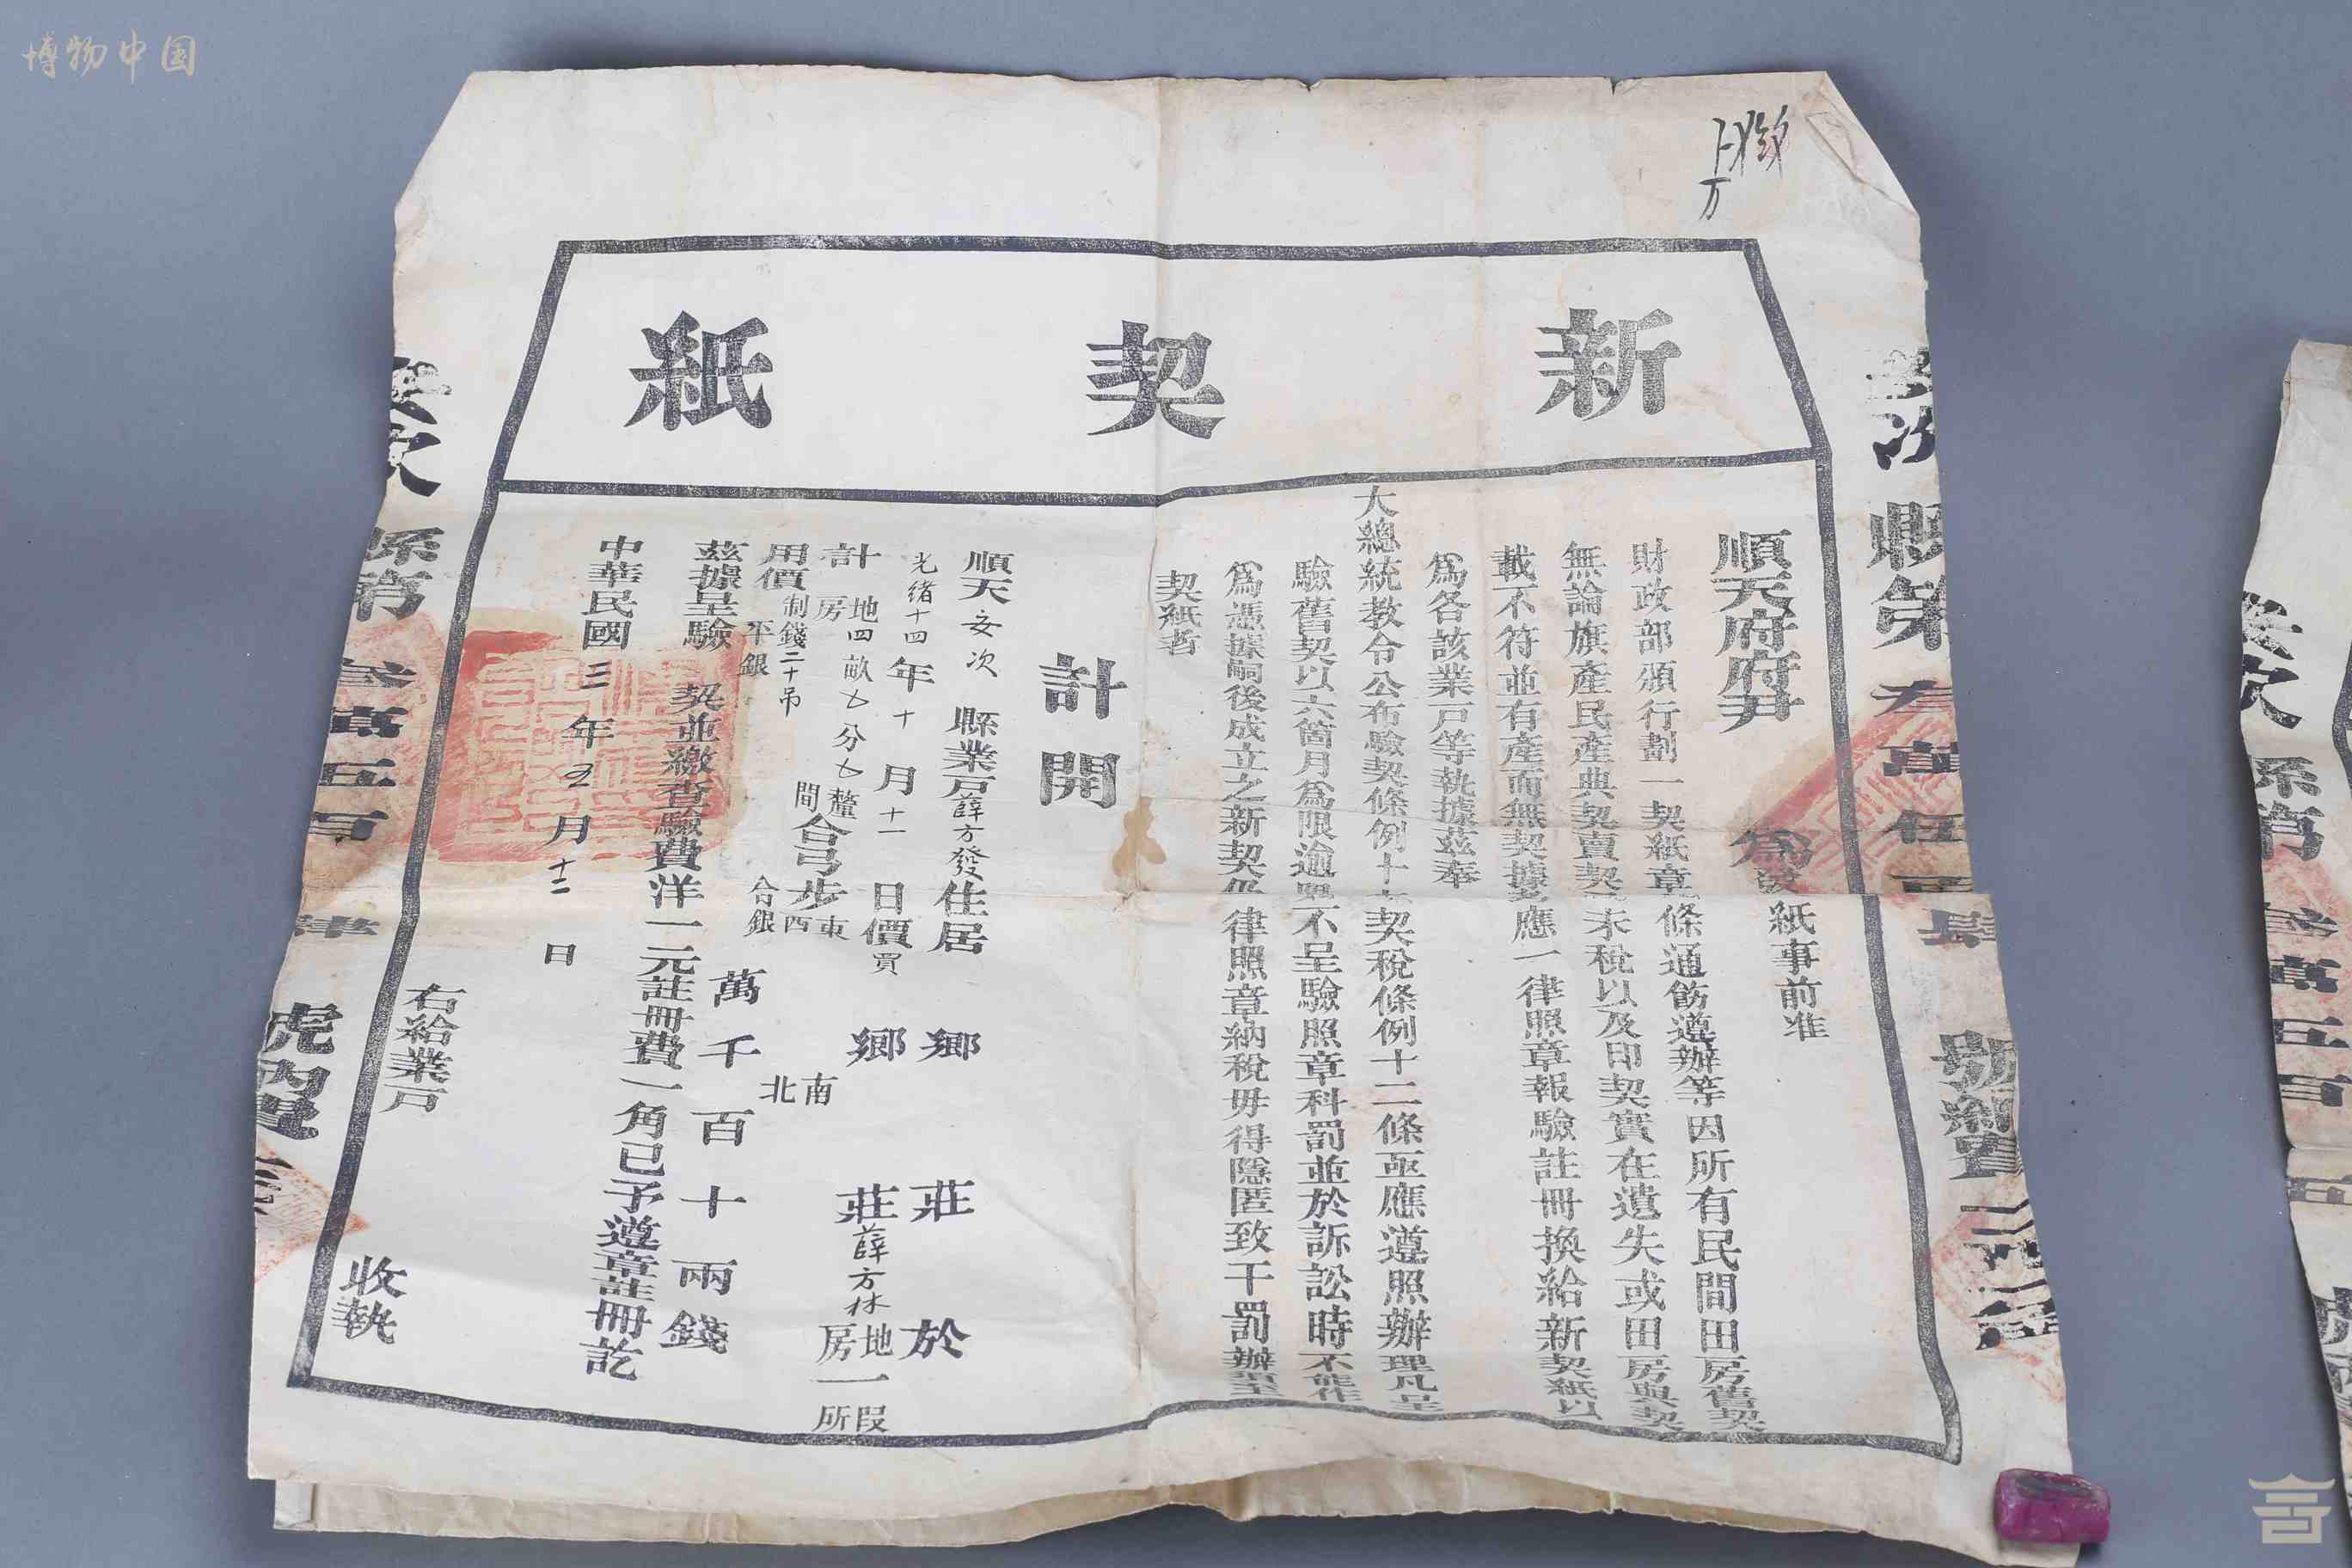 博物中国
新契紙
順天府府尹
為 紙事前准
財政部頒行劃一契紙章條通飭遵辦等因所有民間田房舊契
無論旗產民產典契賣契未稅以及印契實在遺失或田房與契
載不符並有產而無契據者應一律照章報驗註冊換給新契紙以
為各該業戶等執據茲奉
大總統教令公布驗契條例十七契稅條例十二條亟應遵照辦理凡呈
驗舊契以六箇月為限逾 不呈驗照章科罰並於訴訟時不能作
為憑據嗣後成立之新契仍 律照章納稅毋得隱匿致干罰辦須至
契紙者
計開
順天安次縣業戶薛方發住居 鄉 莊於
光緒十四年十月十一日價買 鄉 莊薛方林地房一段所
計地房四畝七分七釐間合弓步東西 南北
用價制錢二十吊平銀合銀 萬千百十兩錢
茲據呈驗 契並繳查驗費洋一元註冊費一角已予遵章註冊訖
中華民國三年五月十二日
右給業戶 收執
縣第 萬伍百肆 號